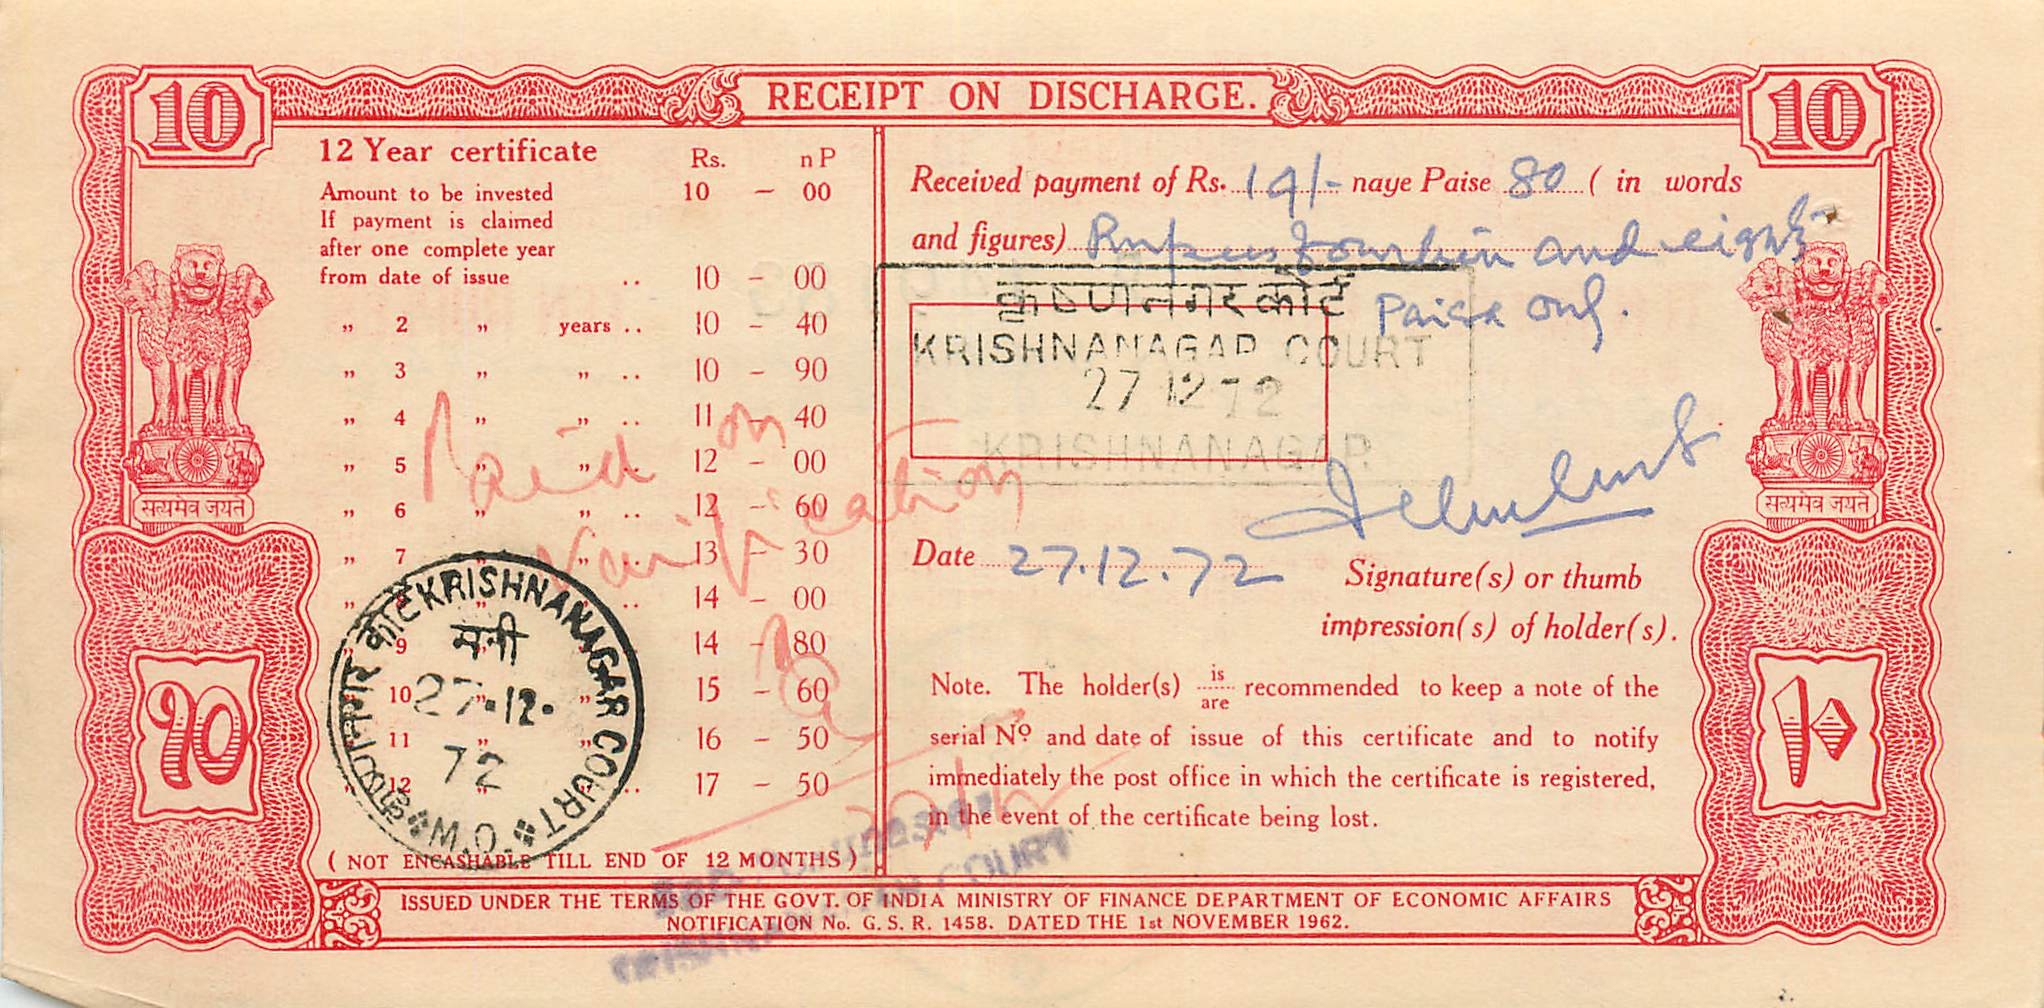 10 RECEIPT ON DISCHARGE. 10
12 Year certificate Rs. n P
Amount to be invested 10 – 00
If payment is claimed
after one complete year
from date of issue .. 10 – 00
„ 2 „ years .. 10 – 40
„ 3 „ „ .. 10 – 90
„ 4 „ „ .. 11 – 40
„ 5 „ „ .. 12 – 00
„ 6 „ „ .. 12 – 60
„ 7 „ „ .. 13 – 30
„ 8 „ „ .. 14 – 00
„ 9 „ „ .. 14 – 80
„ 10 „ „ .. 15 – 60
„ 11 „ „ .. 16 – 50
„ 12 „ „ .. 17 – 50
( NOT ENCASHABLE TILL END OF 12 MONTHS )
Paid on
कृष्णानगर कोर्ट KRISHNANAGAR COURT
मनी
27.12.
72
M.O.
सत्यमेव जयते
१०
Received payment of Rs. 14/- naye Paise 80 ( in words
and figures) Rupees fourteen and eighty
Paisa only.
कृष्णानगर कोर्ट
KRISHNANAGAR COURT
27 12 72
KRISHNANAGAR
Date 27.12.72
Signature(s) or thumb
impression(s) of holder(s).
Note. The holder(s) is/are recommended to keep a note of the
serial Nº and date of issue of this certificate and to notify
immediately the post office in which the certificate is registered,
in the event of the certificate being lost.
सत्यमेव जयते
COURT
ISSUED UNDER THE TERMS OF THE GOVT. OF INDIA MINISTRY OF FINANCE DEPARTMENT OF ECONOMIC AFFAIRS
NOTIFICATION No. G. S. R. 1458. DATED THE 1st NOVEMBER 1962.